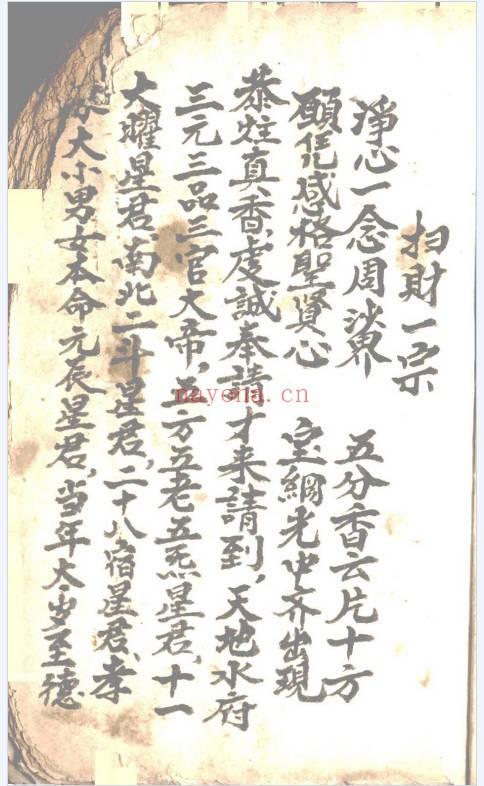 扫財一宗
淨心一念周沙界 五分香云片十方
願凭感格聖賢心 宝綱光中齐出現
恭炷真香,虔誠奉請才来請到,天地水府
三元三品三官大帝,五方五老五炁星君,十一
大曜星君,南北二斗星君,二十八宿星君,孝
大小男女本命元辰星君,当年太岁至德
nayona.cn